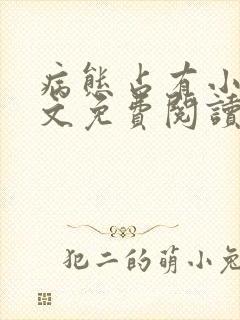 病態占有小
文免費閱讀
犯二的萌小兔